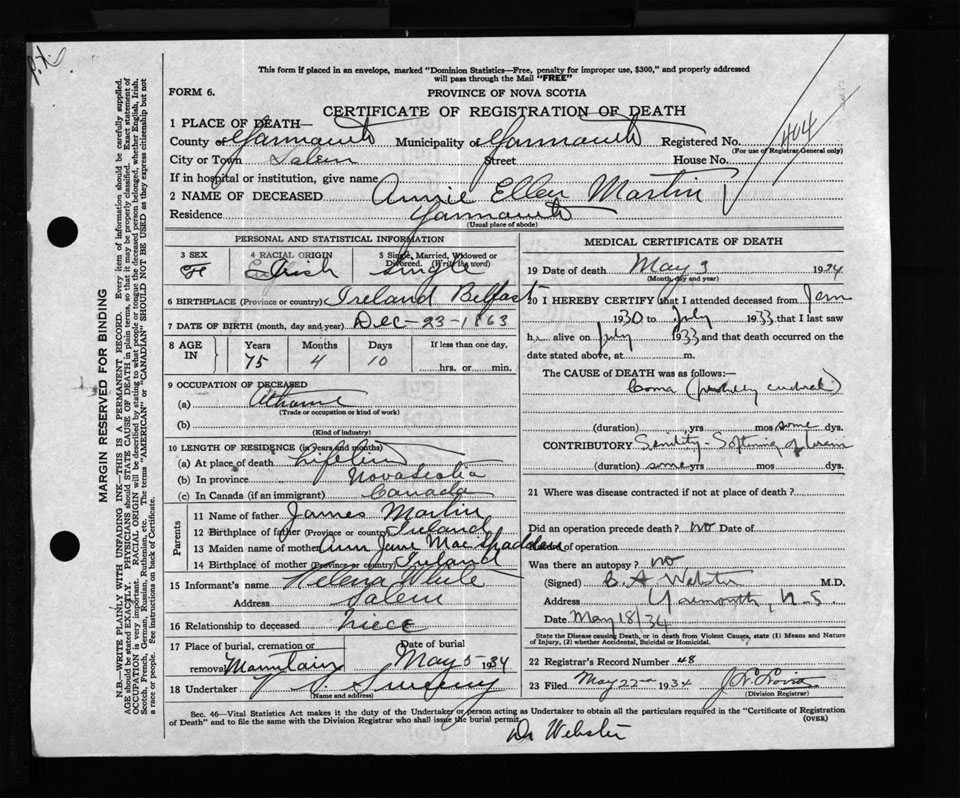 This form if placed in an envelope, marked "Dominion Statistics—Free, penalty for improper use, $300," and properly addressed
will pass through the Mail "FREE"
FORM 6.
PROVINCE OF NOVA SCOTIA
CERTIFICATE OF REGISTRATION OF DEATH
1 PLACE OF DEATH—
County of Yarmouth Municipality of Yarmouth Registered No. 404
(For use of Registrar General only)
City or Town Salem Street House No.
If in hospital or institution, give name
2 NAME OF DECEASED Annie Ellen Martin
Residence Yarmouth
(Usual place of abode)
PERSONAL AND STATISTICAL INFORMATION
3 SEX 4 RACIAL ORIGIN 5 Single, Married, Widowed or
Divorced. (Write the word)
Fe Irish Single
6 BIRTHPLACE (Province or country) Ireland Belfast
7 DATE OF BIRTH (month, day and year) Dec-23-1863
8 AGE IN Years Months Days If less than one day.
75 4 10 hrs. or min.
9 OCCUPATION OF DECEASED
(a) At home
(Trade or occupation or kind of work)
(b)
(Kind of industry)
10 LENGTH OF RESIDENCE (in years and months)
(a) At place of death Lifetime
(b) In province Nova Scotia
(c) In Canada (if an immigrant) Canada
Parents
11 Name of father James Martin
12 Birthplace of father (Province or country) Ireland
13 Maiden name of mother Ann Jane Mac
14 Birthplace of mother (Province or country) Ireland
15 Informant's name Helena White
Address Salem
16 Relationship to deceased Niece
17 Place of burial, cremation or Date of burial
removal Mountain May 5 1934
18 Undertaker V S Sweeny
(Name and address)
MEDICAL CERTIFICATE OF DEATH
19 Date of death May 3 1934
(Month, day and year)
20 I HEREBY CERTIFY that I attended deceased from Jan
1930 to July 1933 that I last saw
h alive on July 1933 and that death occurred on the
date stated above, at m.
The CAUSE OF DEATH was as follows:—
Coma (probably
(duration) yrs mos some dys.
CONTRIBUTORY Senility - Softning of brain
(duration) some yrs mos dys.
21 Where was disease contracted if not at place of death?
Did an operation precede death? no Date of
of operation
Was there an autopsy? no
(Signed) C. A Webster M.D.
Address Yarmouth, N.S.
Date May 18/34
State the Disease causing Death, or in death from Violent Causes, state (1) Means and Nature
of Injury, (2) whether Accidental, Suicidal or Homicidal.
22 Registrar's Record Number 48
23 Filed May 22nd 1934
(Division Registrar)
Sec. 46—Vital Statistics Act makes it the duty of the Undertaker or person acting as Undertaker to obtain all the particulars required in the "Certificate of Registration
of Death" and to file the same with the Division Registrar who shall issue the burial permit.
(OVER)
Dr Webster
MARGIN RESERVED FOR BINDING
N.B.—WRITE PLAINLY WITH UNFADING INK—THIS IS A PERMANENT RECORD. Every item of information should be carefully supplied.
AGE should be stated EXACTLY. PHYSICIANS should STATE CAUSE OF DEATH in plain terms, so that it may be properly classified. Exact statement of
OCCUPATION is very important. RACIAL ORIGIN will be described by stating to what people or tongue the deceased person belonged, whether English, Irish,
Scotch, French, German, Russian, Ruthenian, etc. The terms "AMERICAN" or "CANADIAN" SHOULD NOT BE USED as they express citizenship but not
a race or people. See instructions on back of Certificate.